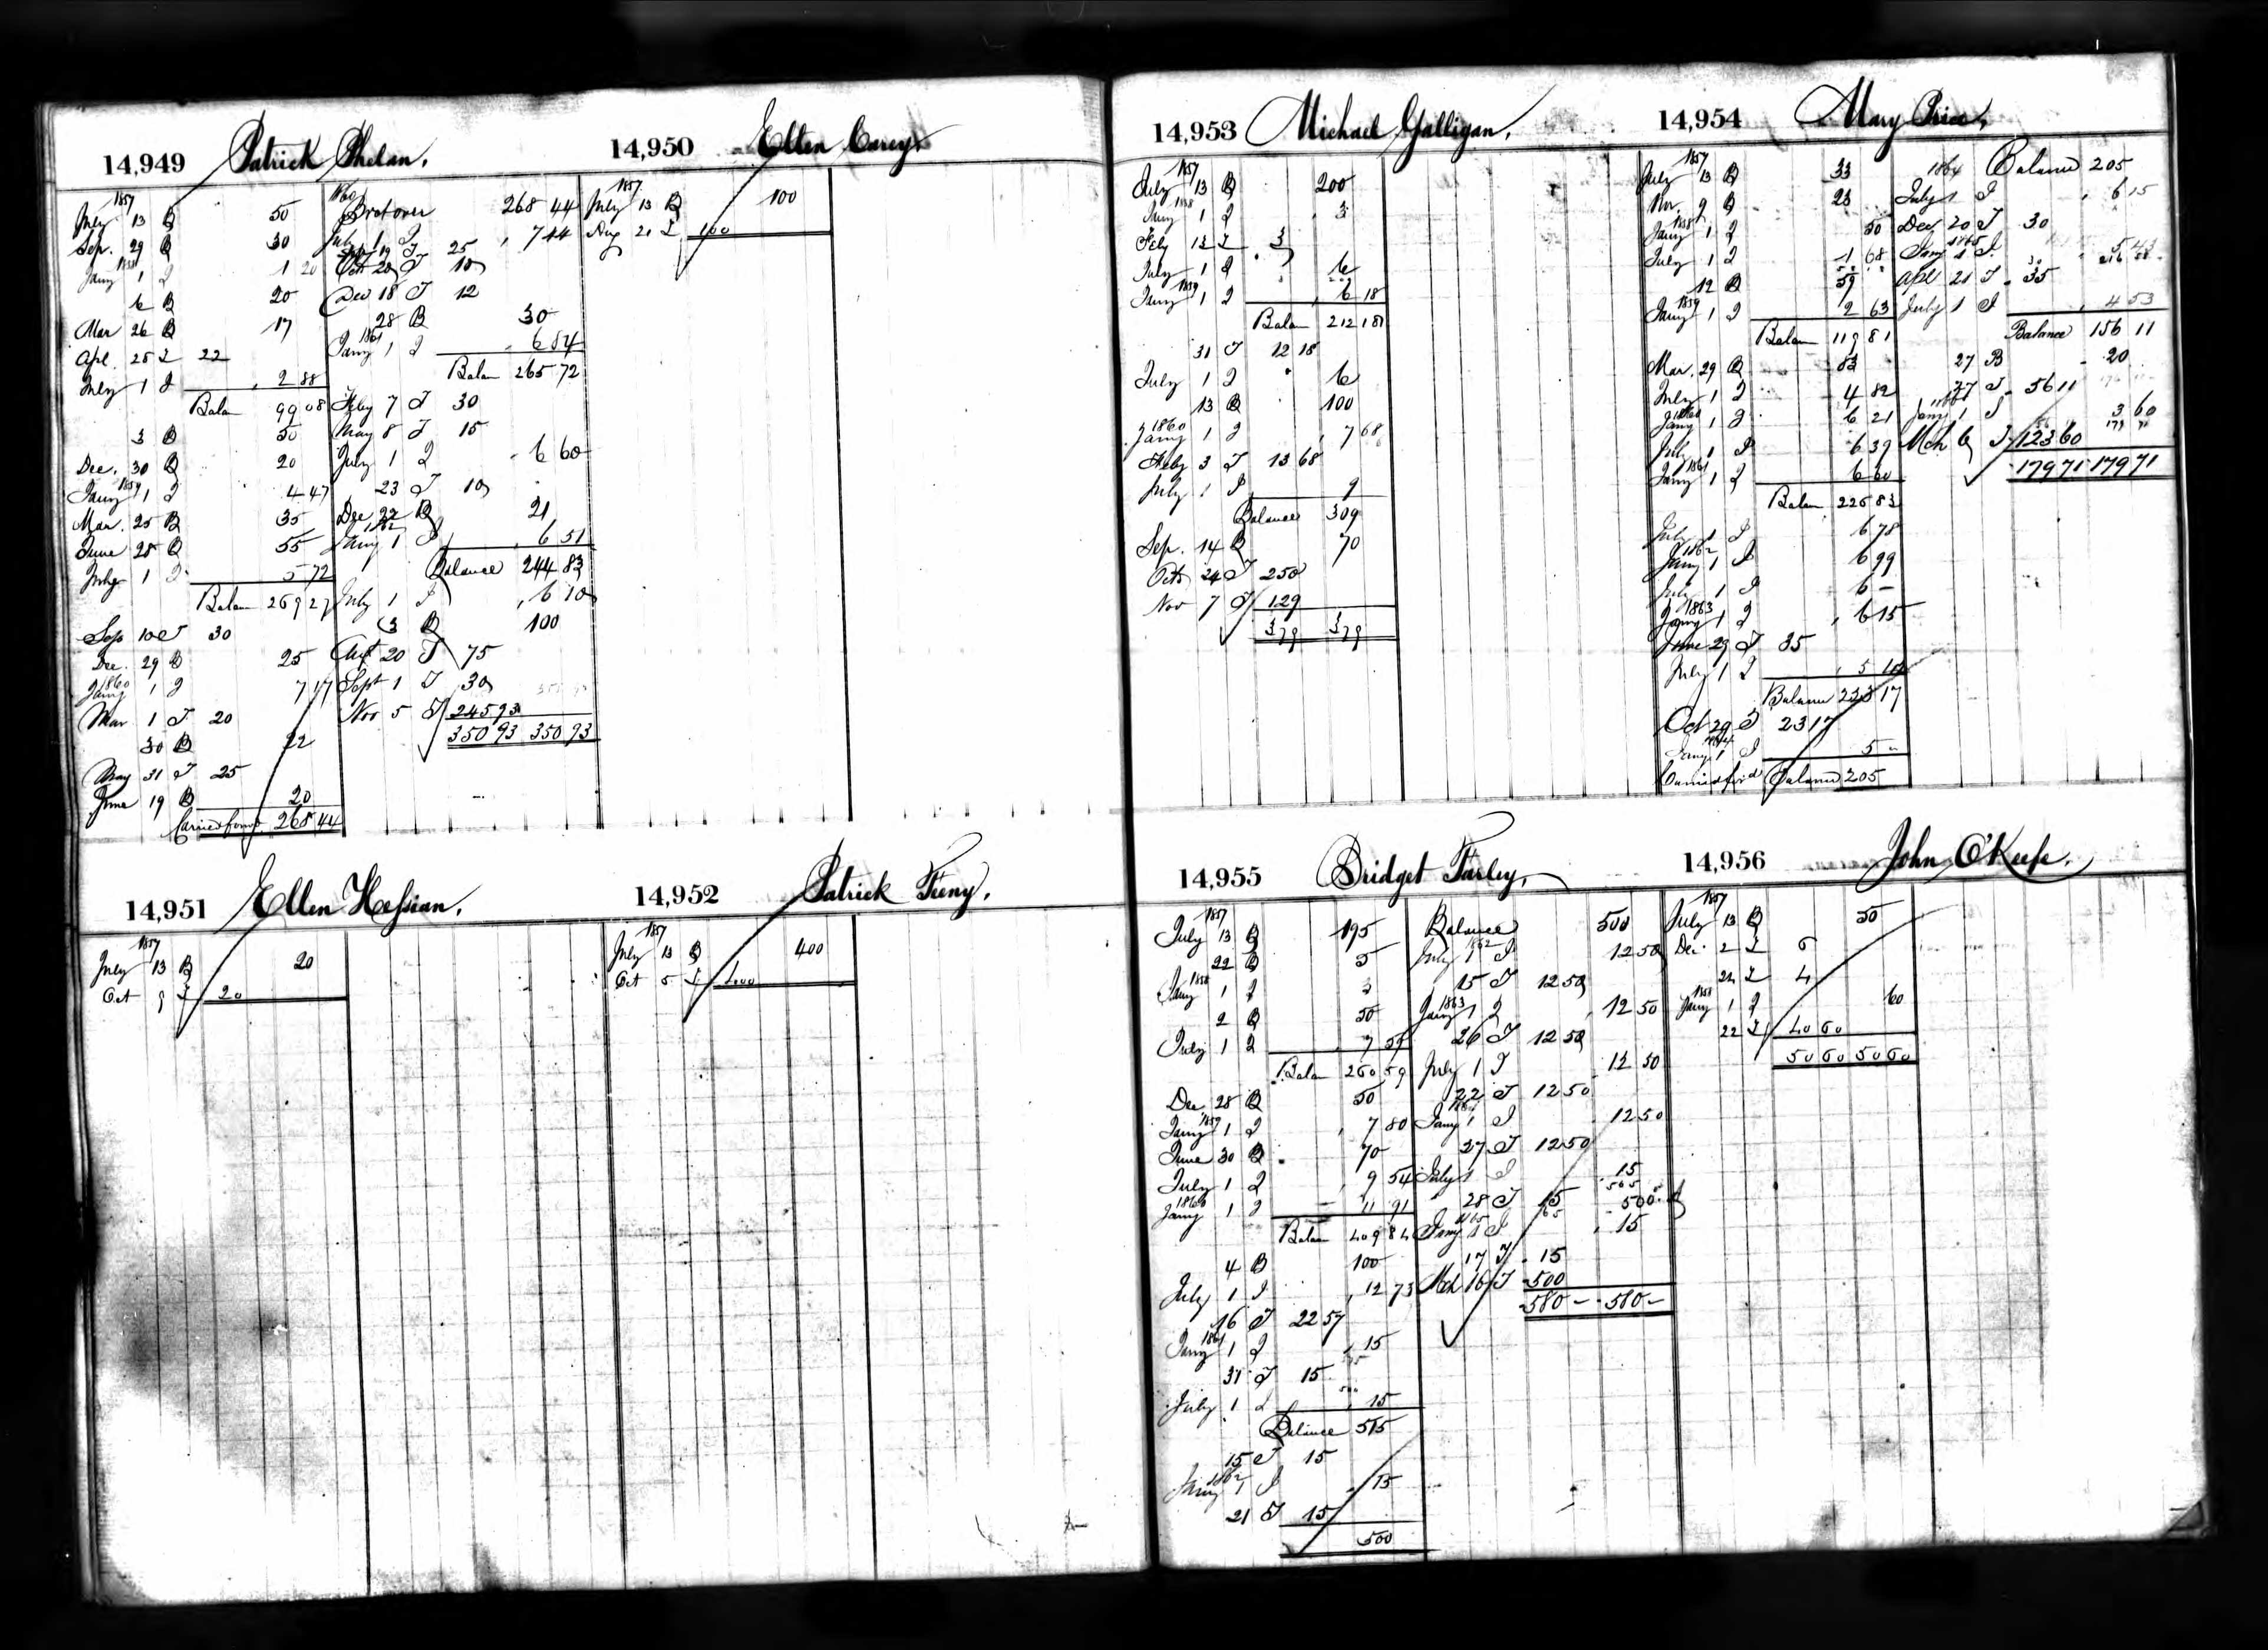 14,949 Patrick Phelan.
1857
July 13 B 50
Sep. 29 B 30
1858
Jany 1 I 1 20
6 B 20
Mar 26 B 17
Apl. 28 T 22
July 1 I 2 88
Balan 99 08
3 B 50
Dec. 30 B 20
1859
Jany 1 I 4 47
Mar. 25 B 35
June 28 B 55
July 1 I 5 72
Balan 269 27
Sep 10 T 30
Dec. 29 B 25
1860
Jany 1 I 7 17
Mar 1 T 20
30 B 22
May 31 T 25
June 19 B 20
Carried forwd 268 44
1860
Brot over 268 44
July 1 I 7 44
19 T 25
Oct 20 T 10
Dec 18 T 12
28 B 30
1861
Jany 1 I 6 84
Balan 265 72
Feby 7 T 30
May 8 T 15
July 1 I 6 60
23 T 10
Dec 22 B 21
1862
Jany 1 I 6 51
Balance 244 83
July 1 I 6 10
3 B 100
Augt 20 T 75
Sept 1 T 30
Nov 5 T 245 93
350 93 350 93
14,950 Ellen Carey.
1857
July 13 B 100
Aug 21 T 100
14,951 Ellen Hessian.
1857
July 13 B 20
Oct 9 T 20
14,952 Patrick Feeny.
1857
July 13 B 400
Oct 5 T 400
14,953 Michael Galligan.
1857
July 13 B 200
1858
Jany 1 I 3
Feby 12 T 3
July 1 I 6
1859
Jany 1 I 6 18
Balan 212 18
31 T 12 18
July 1 I 6
13 B 100
1860
Jany 1 I 7 68
Feby 3 T 13 68
July 1 I 9
Balance 309
Sep. 14 B 70
Oct 24 T 250
Nov 7 T 129
379 379
14,954 Mary Price.
1857
July 13 B 33
Nov. 9 B 23
1858
Jany 1 I 50
July 1 I 1 68
12 B 59
1859
Jany 1 I 2 63
Balan 119 81
Mar. 29 B 83
July 1 I 4 82
1860
Jany 1 I 6 21
July 1 I 6 39
1861
Jany 1 I 6 60
Balan 226 83
July 1 I 6 78
1862
Jany 1 I 6 99
July 1 I 6 –
1863
Jany 1 I 6 15
June 29 T 35
July 1 I 5
Balance 223 17
Oct 29 T 23 17
1864
Jany 1 I 5 –
Carried forwd Balance 205
1864 Balance 205
July 1 I 6 15
Dec 20 T 30
1865
Jany 1 I 5 43
Apl 21 T 35
July 1 I 4 53
Balance 156 11
27 B 20
27 T 56 11
1866
Jany 1 I 3 60
Mch 6 T 123 60
179 71 179 71
14,955 Bridget Farley.
1857
July 13 B 195
22 B 5
1858
Jany 1 I 3
2 B 50
July 1 I 7 59
Balan 260 59
Dec 28 B 50
1859
Jany 1 I 7 80
June 30 B 70
July 1 I 9 54
1860
Jany 1 I 11 91
Balan 409 84
4 B 100
July 1 I 12 73
16 T 22 57
1861
Jany 1 I 15
31 T 15
July 1 I 15
Balance 515
15 T 15
1862
Jany 1 I 15
21 T 15
500
Balance 500
1862
July 1 I 12 50
15 T 12 50
1863
Jany 1 I 12 50
26 T 12 50
July 1 I 12 50
22 T 12 50
1864
Jany 1 I 12 50
27 T 12 50
July 1 I 15
28 T 15 500
1865
Jany 1 I 15
17 T 15
Mch 16 T 500
580 – 580 –
14,956 John O'Keefe.
1857
July 13 B 50
Dec. 2 T 6
21 T 4
1858
Jany 1 I 60
22 T 40 60
50 60 50 60